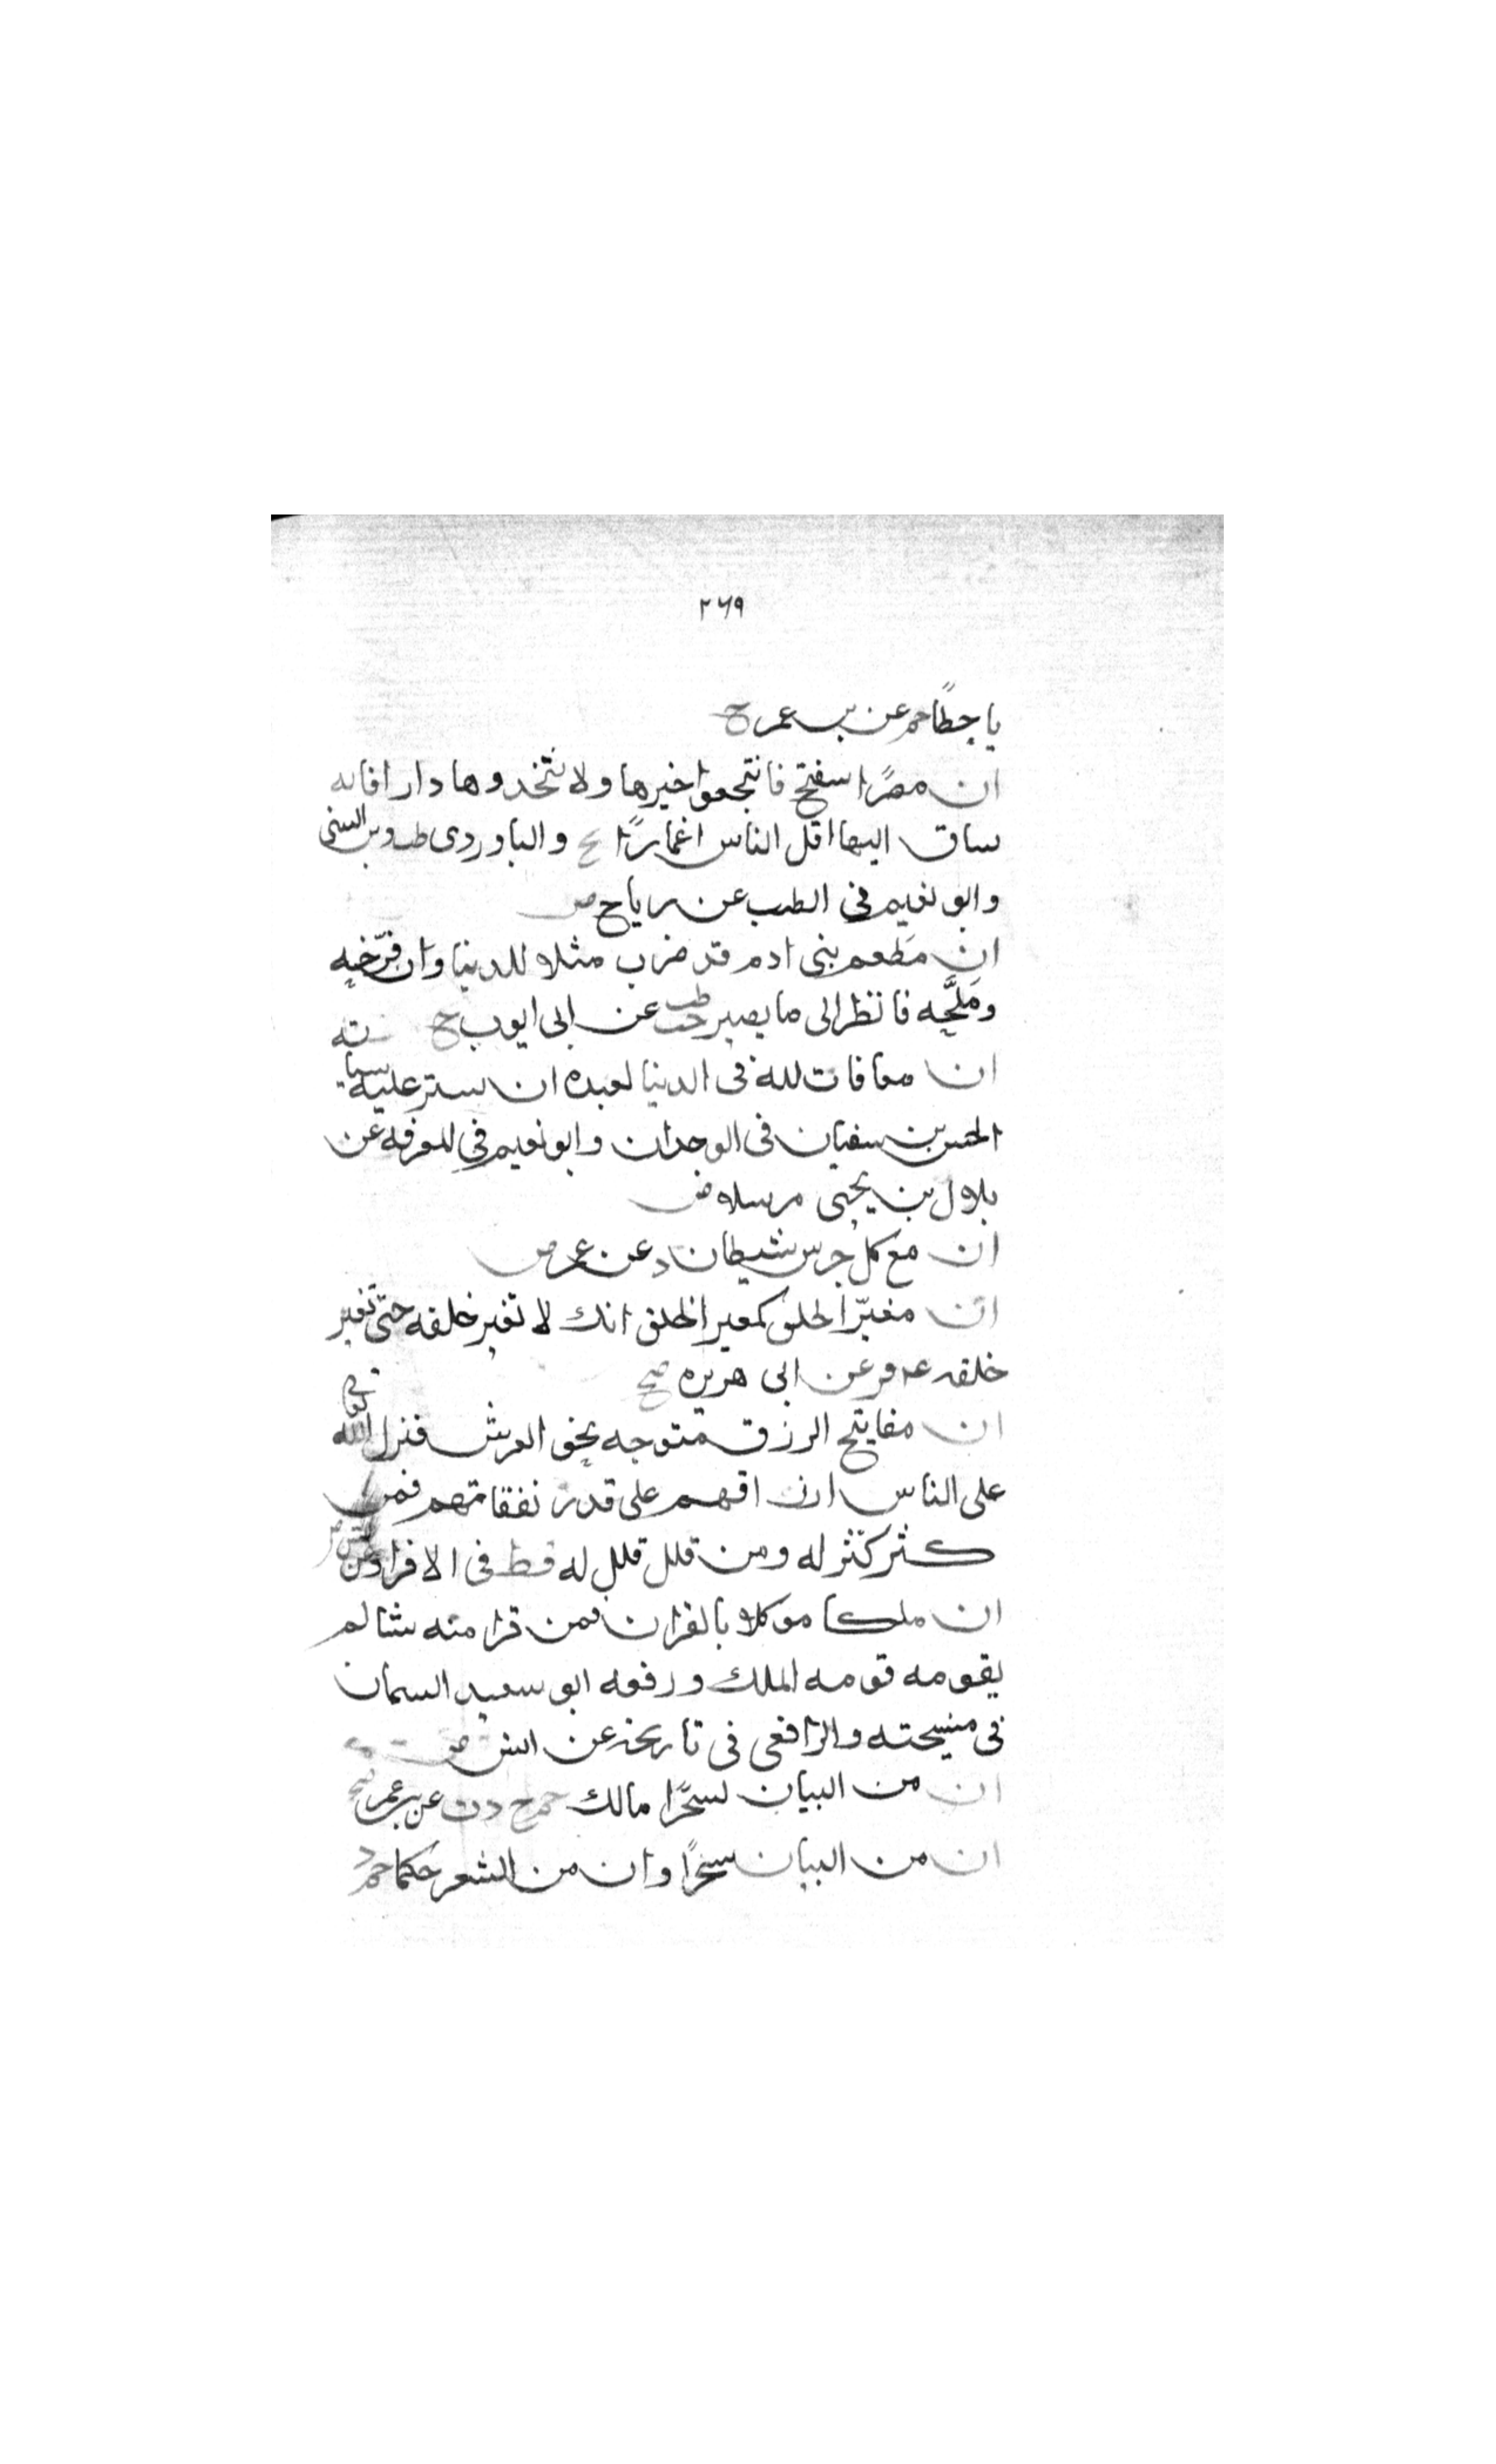 ٢٦٩
يا حطاً حم عن بن عمر ح
ان مصرًا ستفتح فانتجعوا خيرها ولا تتخذوها دارا فانه
يساق اليها اقل الناس اعمارًا خ والباوردى طب وبن السنى
وابو نعيم فى الطب عن رباح ض
ان مطعم بنى ادم قد ضرب مثلا للدنيا وان قزّخه
وملَّحه فانظر الى ما يصير حب طب عن ابى ايوب ح
ان معافات لله فى الدنيا لعبده ان يستر عليه سيأته
الحسن بن سفيان فى الوحدان وابو نعيم فى المعرفه عن
بلال بن يحيى مرسلا ض
ان مع كل جرس شيطان د عن عمر ض
ان مغيّر الخلق كمغير الخلق انك لا تغير خلقه حتى تغير
خلقه عد فر عن ابى هريره صح
ان مفايتح الرزق متوجه نحو العرش فنزل الله
على الناس ارزاقهم على قدر نفقاتهم فمن
كثر كثر له ومن قلل قلل له قط فى الافراد عن
ان ملكا موكلا بالقران فمن قرا منه شئا لم
يقومه قومه الملك ورفعه ابو سعيد السمان
فى مشيخته والرافعى فى تاريخه عن انس ض
ان من البيان لسحرًا مالك حم خ د ت عن بن عمر صح
ان من البيان سحرًا وان من الشعر حكما حم د